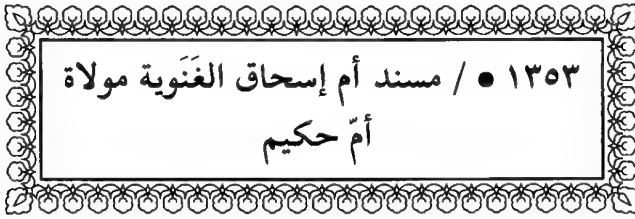 ١٣٥٣ ● / مسند أم إسحاق الغَنَوية مولاة
أمّ حكيم